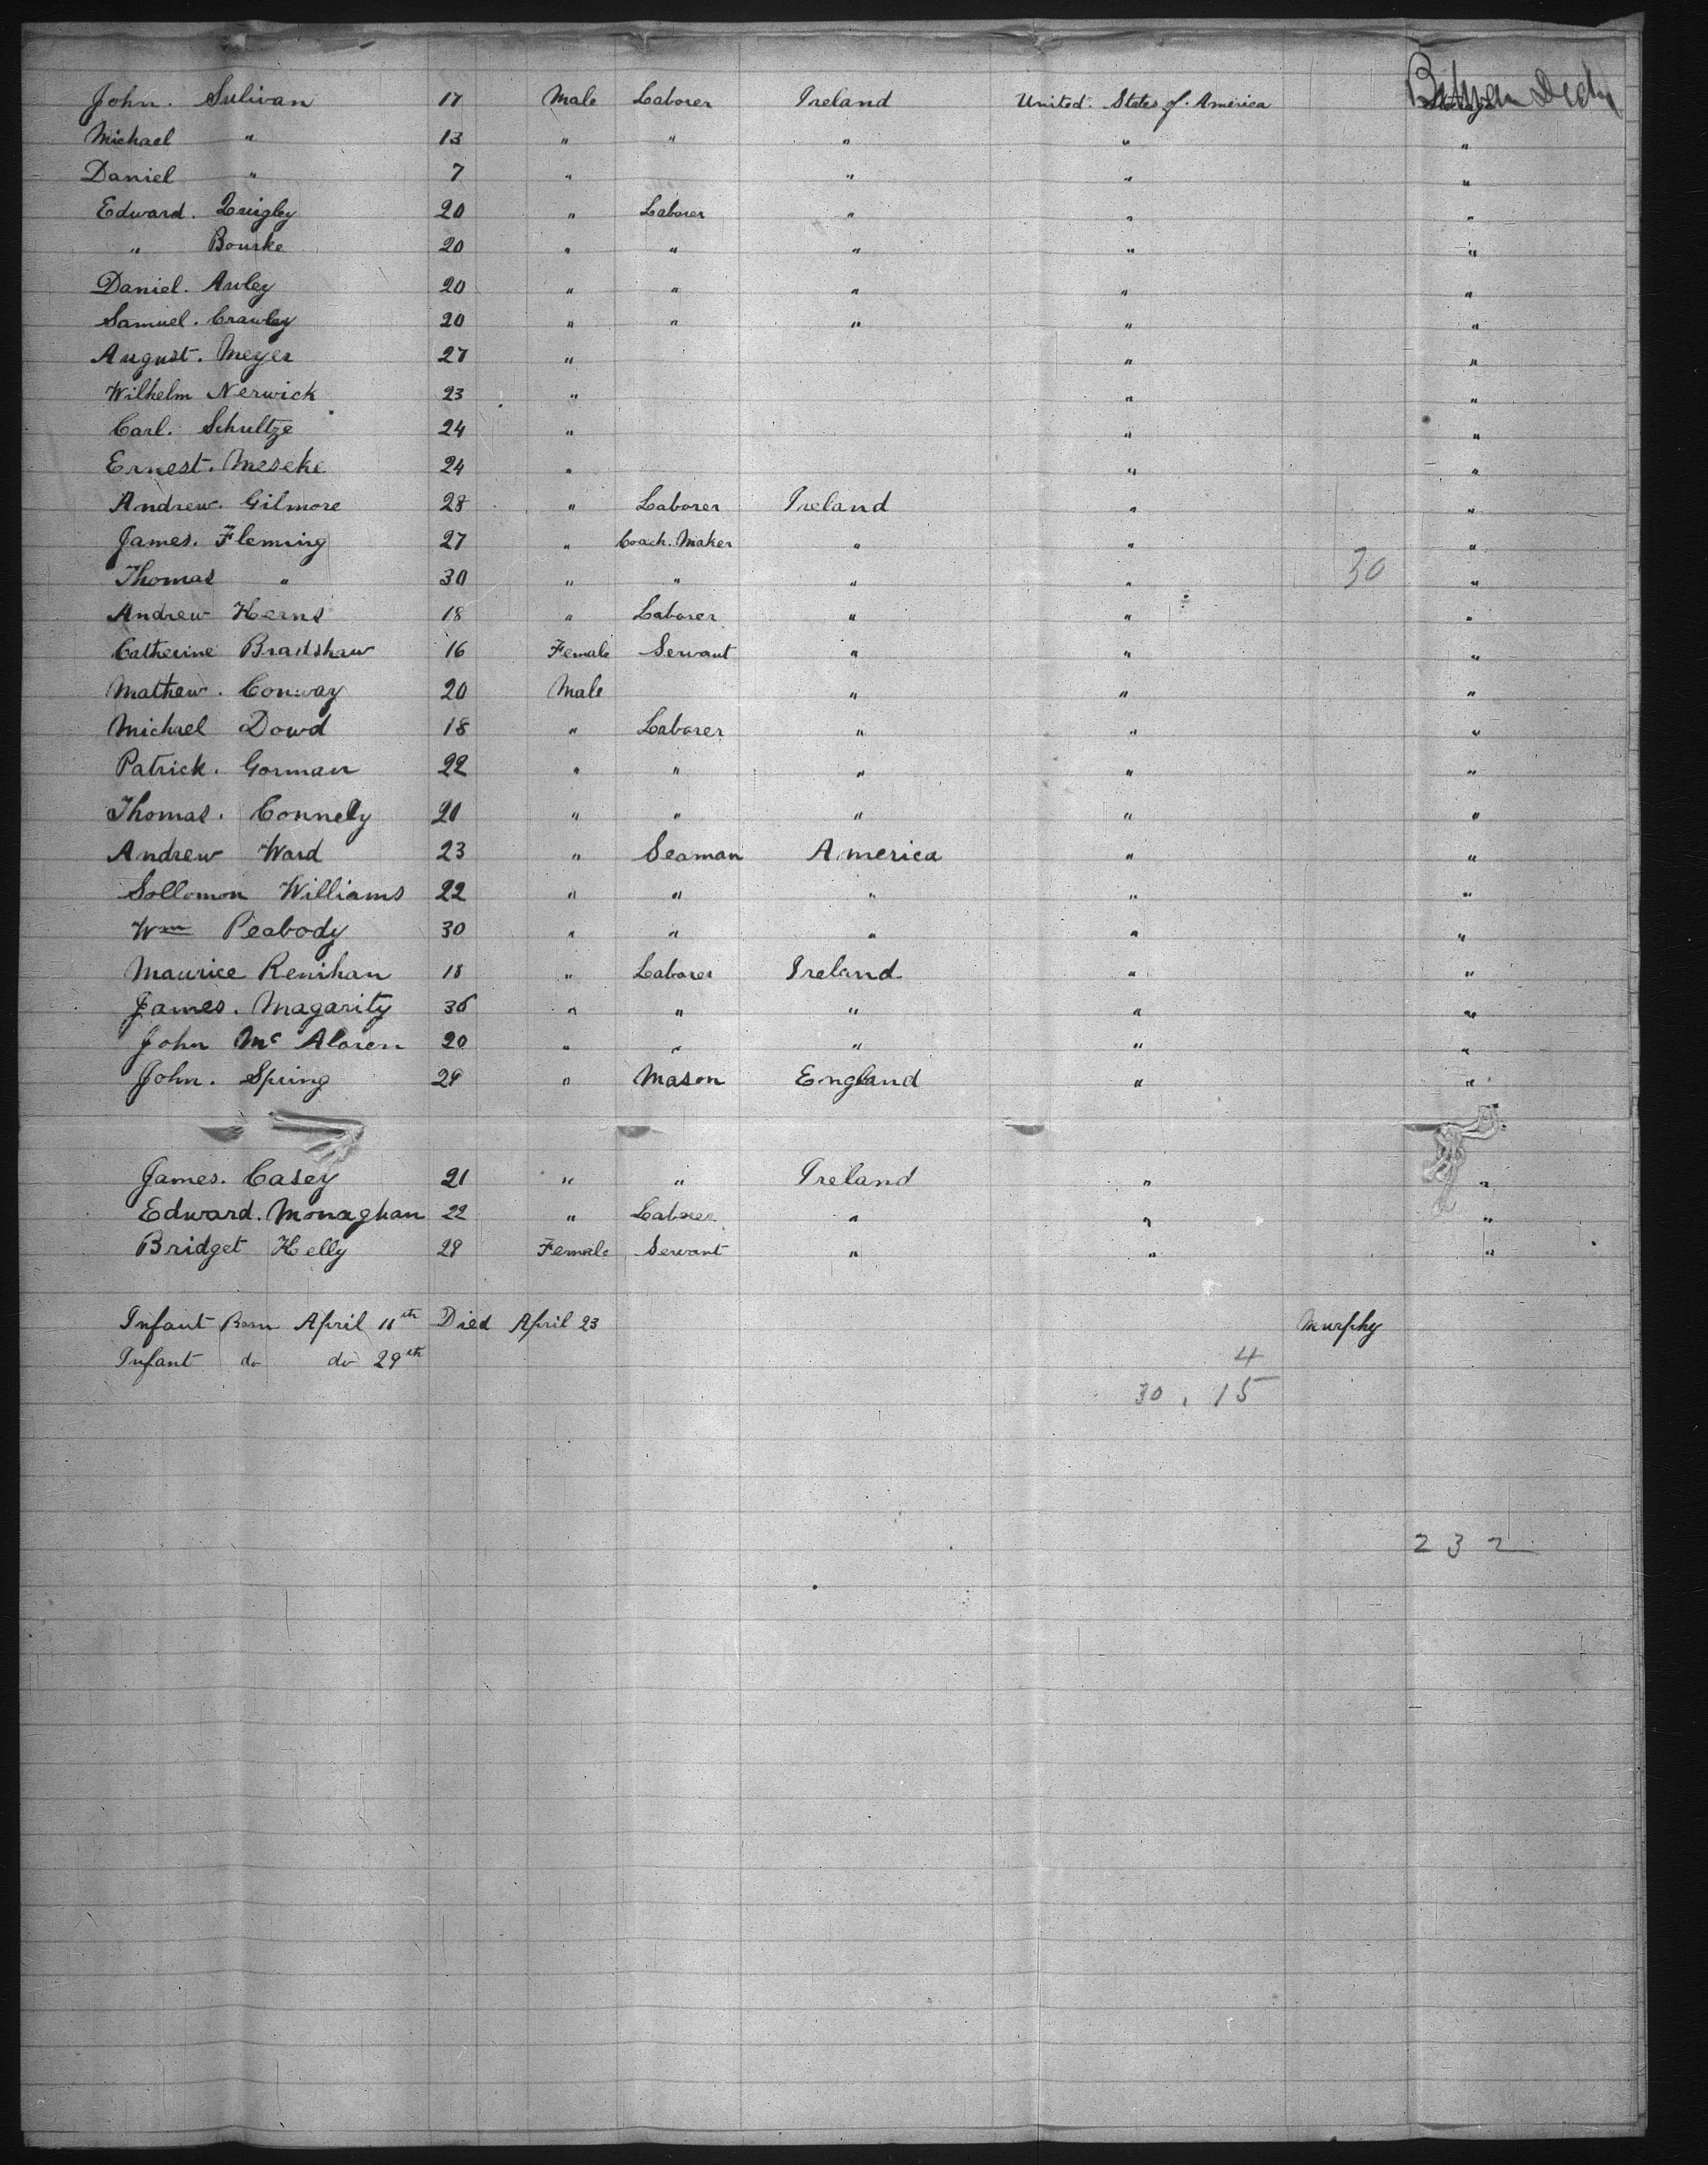 John. Sulivan 17 Male Laborer Ireland United States of America Between Decks
Michael " 13 " " " " "
Daniel " 7 " " " "
Edward. Quigley 20 " Laborer " " "
" Bourke 20 " " " " "
Daniel. Auley 20 " " " " "
Samuel. Crawley 20 " " " " "
August. Meyer 27 " " "
Wilhelm Nerwick 23 " " "
Carl. Schultze 24 " " "
Ernest. Meseke 24 " " "
Andrew. Gilmore 28 " Laborer Ireland " "
James. Fleming 27 " Coach. Maker " " "
Thomas " 30 " " " " 30 "
Andrew Kerns 18 " Laborer " " "
Catherine Bradshaw 16 Female Servant " " "
Mathew. Conway 20 Male " " "
Michael Dowd 18 " Laborer " " "
Patrick. Gorman 22 " " " " "
Thomas. Connely 20 " " " " "
Andrew Ward 23 " Seaman America " "
Sollomon Williams 22 " " " " "
Wm Peabody 30 " " " " "
Maurice Renihan 18 " Laborer Ireland " "
James. Magarity 36 " " " " "
John Mc Aloren 20 " " " " "
John. Spring 29 " Mason England " "
James. Casey 21 " " Ireland " "
Edward. Monaghan 22 " Laborer " " "
Bridget Kelly 28 Female Servant " " "
Infant Born April 11th Died April 23 Murphy
Infant do do 29th
4
30 . 15
232